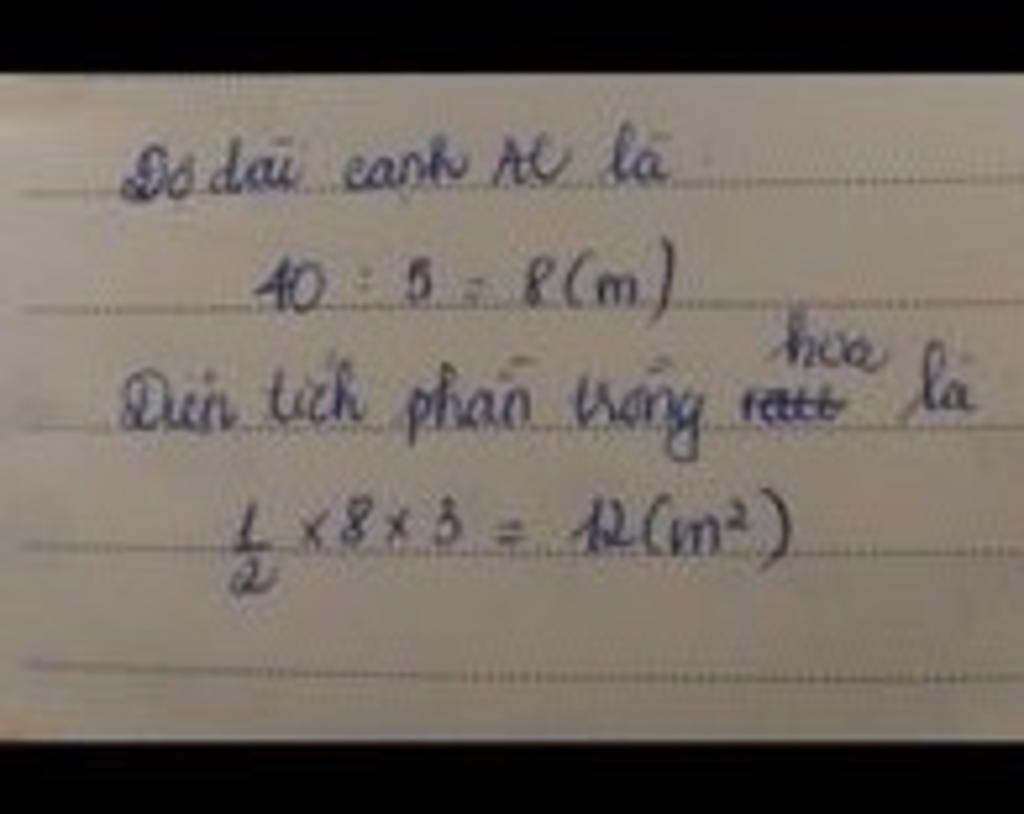 Độ dài cạnh AC là
40 : 5 = 8 (m)
Diện tích phần trồng hoa là
1/2 × 8 × 3 = 12 (m²)